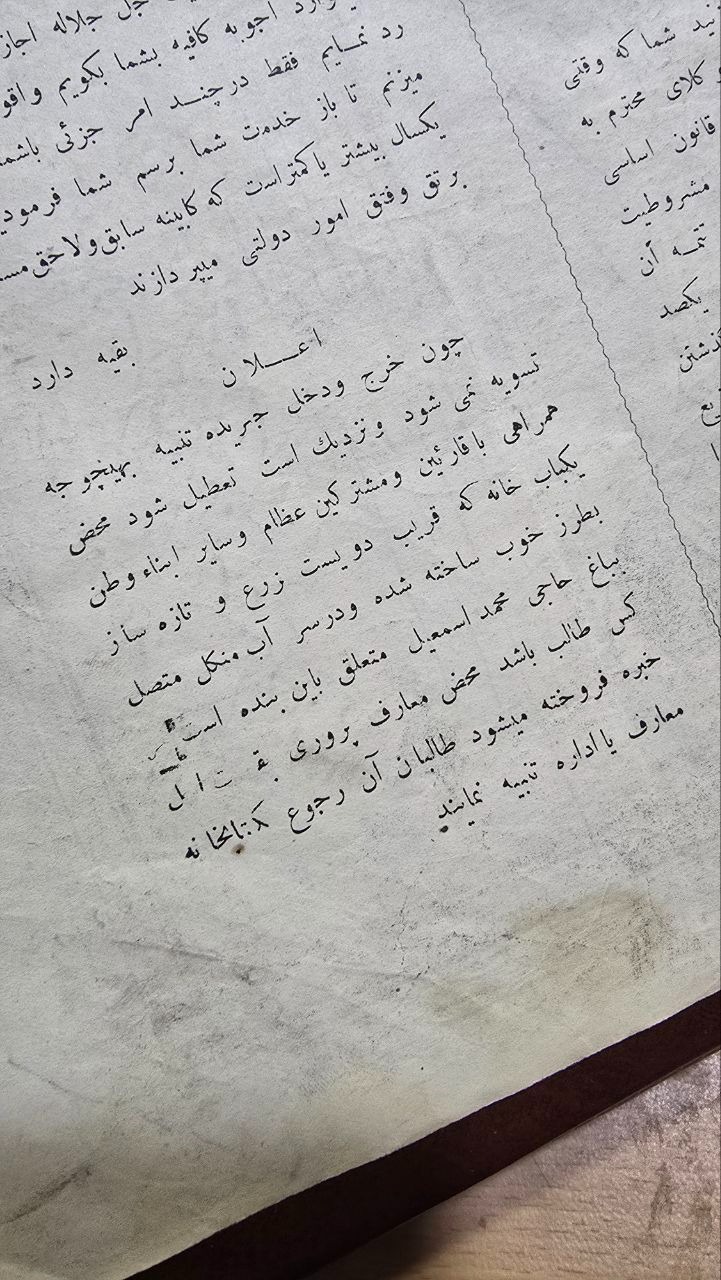 جل جلاله اجازه
اجوبه کافیه بشما بکویم واقو
رد نمایم فقط درچند امر جزئی باشما
میزنم تا باز خدمت شما برسم شما فرمودید
یکسال بیشتر یا کمتر است که کابینه سابق ولاحق
برتق وفتق امور دولتی میپردازند
بقیه دارد
اعلان
چون خرج ودخل جریده تنبیه بهیچوجه
تسویه نمی شود ونزدیك است تعطیل شود محض
همراهی باقارئین ومشترکین عظام وسایر ابناء وطن
یکباب خانه که قریب دویست زرع و تازه ساز
بطرز خوب ساخته شده ودرسر آب منکل متصل
بباغ حاجی محمد اسمعیل متعلق باین بنده است
کس طالب باشد محض معارف پروری
خبره فروخته میشود طالبان آن رجوع کتابخانه
معارف یا اداره تنبیه نمایند
نید شما که وقتی
وکلای محترم به
قانون اساسی
مشروطیت
تتمه آن
یکصد